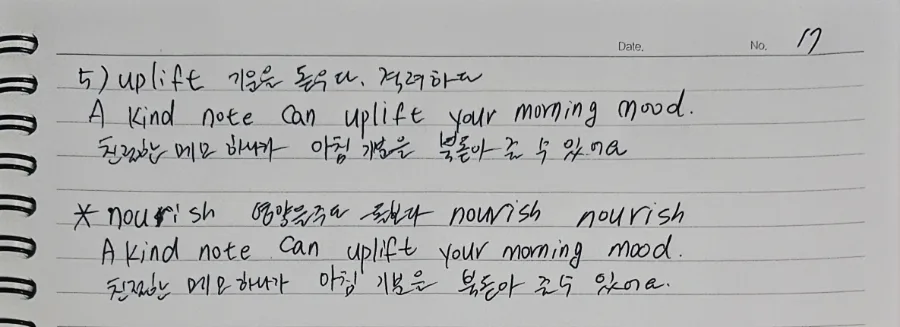 Date. No. 17
5) uplift 기운을 돋우다, 격려하다
A kind note can uplift your morning mood.
친절한 메모 하나가 아침 기분을 북돋아 줄 수 있어요
* nourish 영양을주다 nourish nourish
A kind note can uplift your morning mood.
친절한 메모 하나가 아침 기분을 북돋아 줄수 있어요.